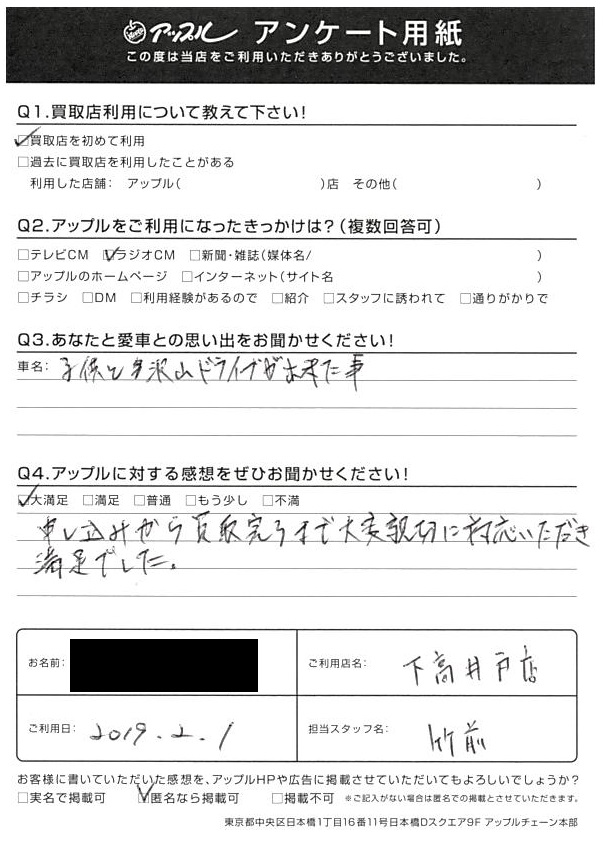 アップル アンケート用紙
この度は当店をご利用いただきありがとうございました。
Q1.買取店利用について教えて下さい！
☑買取店を初めて利用
□過去に買取店を利用したことがある
利用した店舗： アップル（ ）店 その他（ ）
Q2.アップルをご利用になったきっかけは？（複数回答可）
□テレビCM ☑ラジオCM □新聞・雑誌（媒体名/ ）
□アップルのホームページ □インターネット（サイト名 ）
□チラシ □DM □利用経験があるので □紹介 □スタッフに誘われて □通りがかりで
Q3.あなたと愛車との思い出をお聞かせください！
車名： 子供と多沢山ドライブが出来た事
Q4.アップルに対する感想をぜひお聞かせください！
☑大満足 □満足 □普通 □もう少し □不満
申し込みから買取完了まで大変親切に対応いただき
満足でした。
お名前：
ご利用店名： 下高井戸店
ご利用日： 2019.2.1
担当スタッフ名： 竹前
お客様に書いていただいた感想を、アップルHPや広告に掲載させていただいてもよろしいでしょうか？
□実名で掲載可 ☑匿名なら掲載可 □掲載不可 ※ご記入がない場合は匿名での掲載とさせていただきます。
東京都中央区日本橋1丁目16番11号日本橋Dスクエア9F アップルチェーン本部